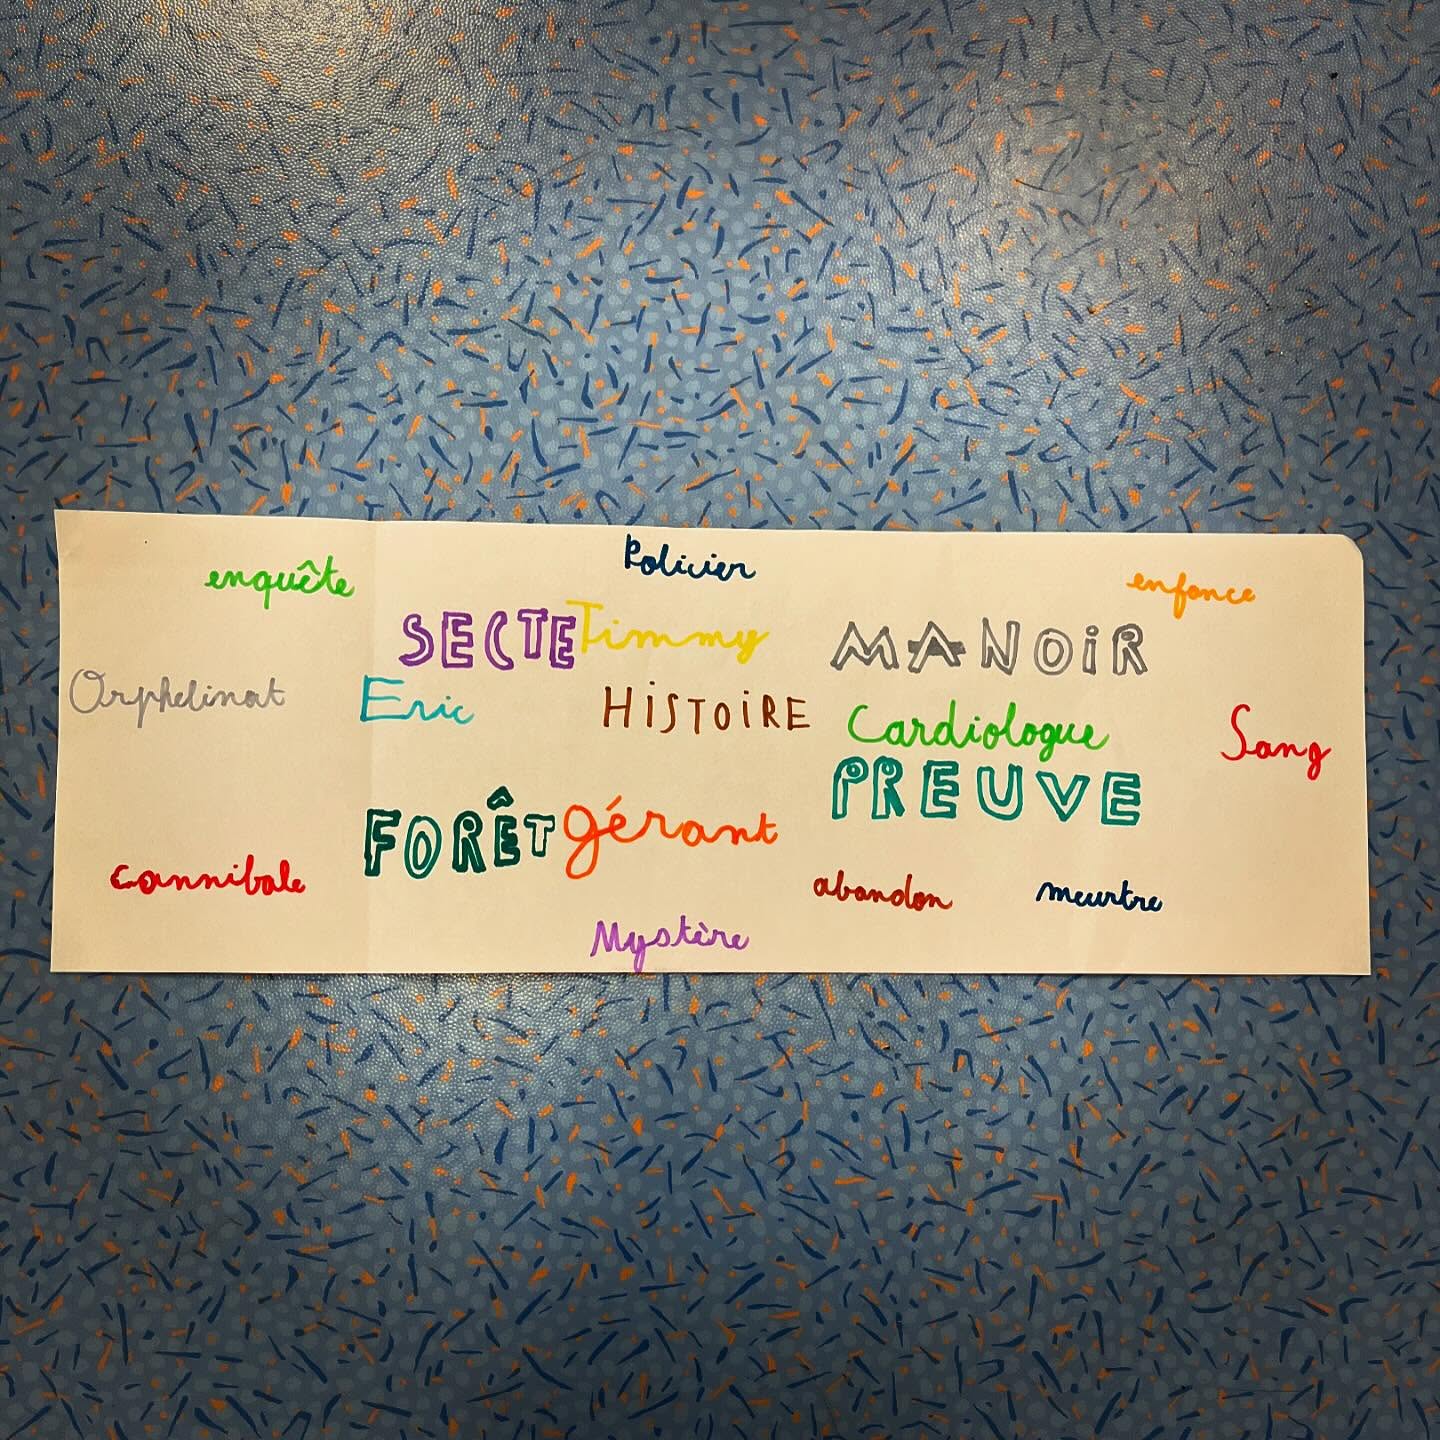 Policier
enquête
enfance
SECTE Timmy
MANOiR
Orphelinat
Eric
HiSTOiRE
Cardiologue
Sang
PREUVE
FORÊT gérant
cannibale
abandon
meurtre
Mystère